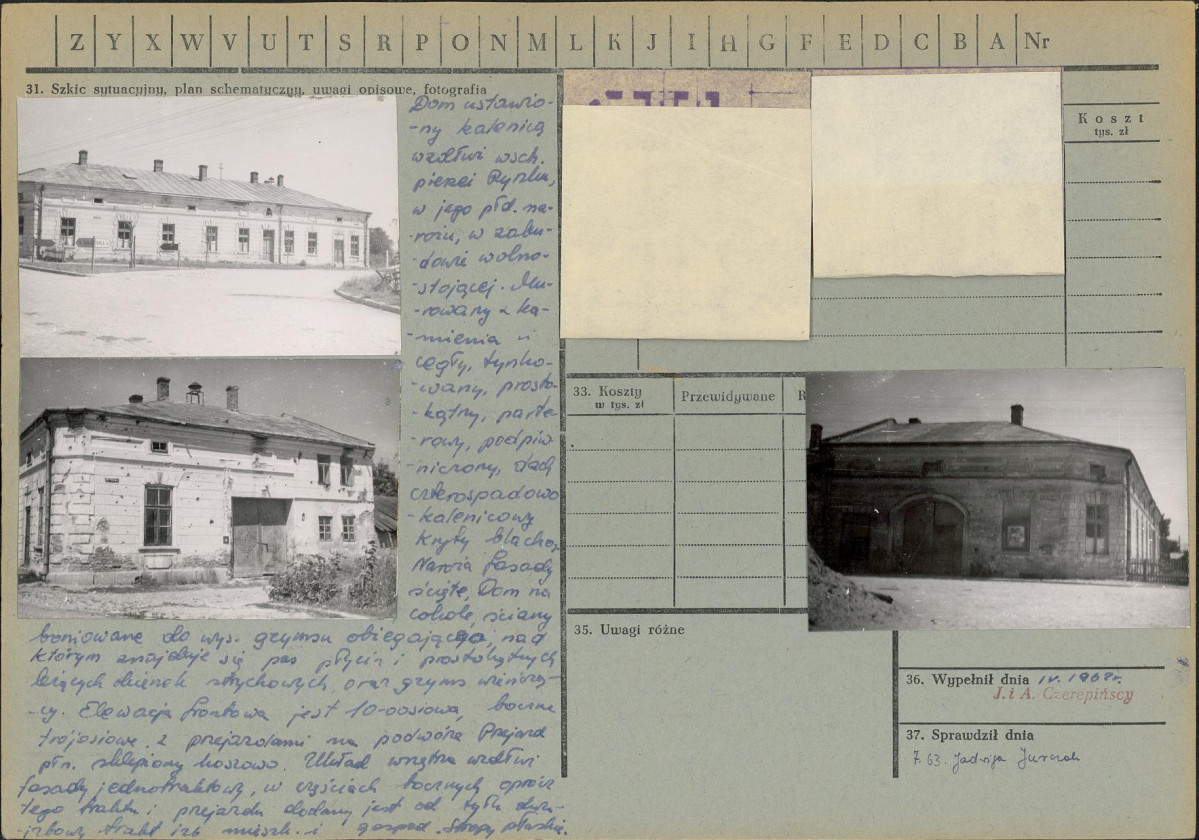 Z Y X W V U T S R P O N M L K J I H G F E D C B A Nr
31. Szkic sytuacyjny, plan schematyczny, uwagi opisowe, fotografia
Dom ustawio-
-ny kalenicą
wzdłuż wsch.
pierzei Rynku,
w jego płd. na-
rożu, w zabu-
dowie wolno-
-stojącej. Mu-
-rowany z ka-
-mienia i
cegły, tynko-
-wany, prosto-
-kątny, parte-
-rowy, podpiw-
-niczony, dach
czterospadowo
-kalenicowy
kryty blachą,
Naroża fasady
ścięte, Dom na
cokole, ściany
boniowane do wys. gzymsu obiegającego, nad
którym znajduje się pas płycin i prostokątnych
leżących okienek strychowych, oraz gzyms wieńczą-
-cy. Elewacja frontowa jest 10-osiowa, boczne
trójosiowe, z przejazdami na podwórze Przejazd
płn. sklepiony koszowo. Układ wnętrza wzdłuż
fasady jednotraktowy, w częściach bocznych oprócz
tego traktu i przejazdu dodany jest od tyłu
trakt izb mieszk. i gospod. Stropy płaskie.
Koszt
tys. zł
33. Koszty
w tys. zł
Przewidywane
R
35. Uwagi różne
36. Wypełnił dnia IV. 1968r.
J. i A. Czerepińscy
37. Sprawdził dnia
Jadwiga